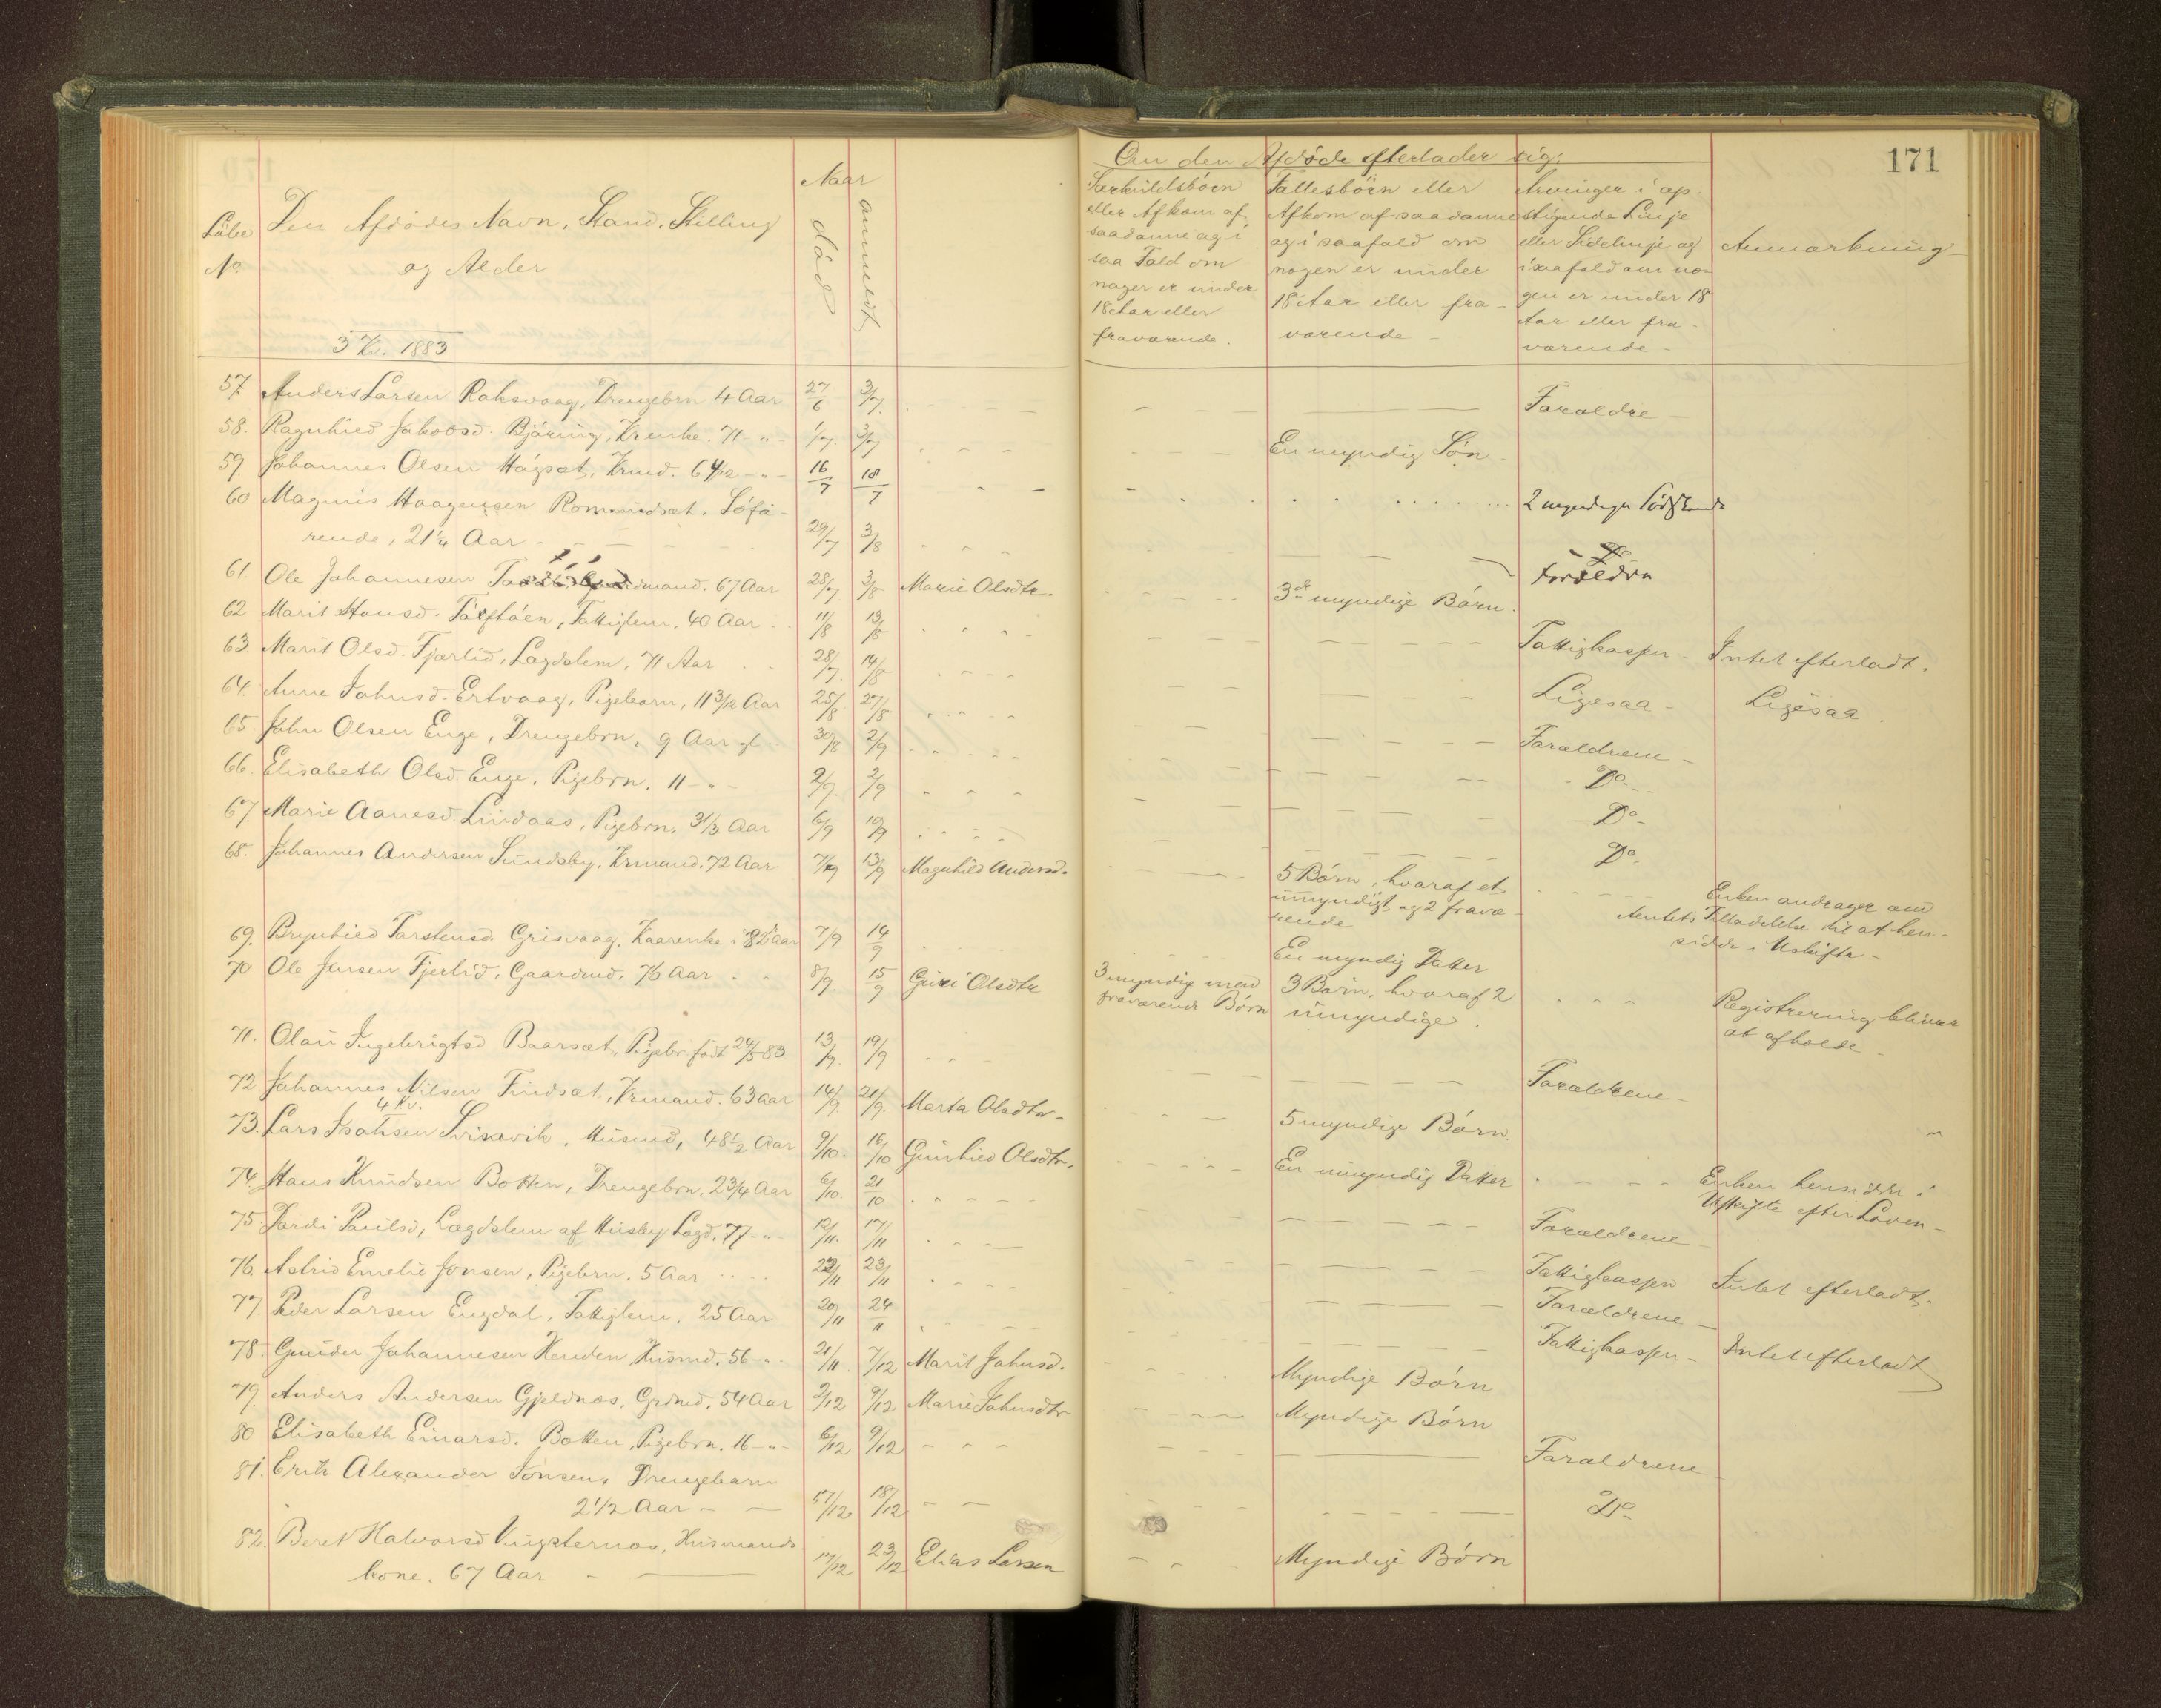 171
Om den Afdöde efterlader sig:
Löbe No.
Den Afdödes Navn, Stand, Stilling
og Alder
Naar
död
anmeldt
Særkuldsbörn
eller Afkom af
saadanne og i
saa Fald om
nogen er under
18 Aar eller
fraværende.
Fællesbörn eller
Afkom af saadanne
og i saafald om
nogen er under
18 Aar eller fra-
værende -
Arvinger i op-
stigende Linje
eller Sidelinje og
i saafald om no-
gen er under 18
Aar eller fra-
værende -
Anmærkning -
3 Kv. 1883
57. Anders Larsen Roksvaag, Drengebrn 4 Aar 27/6 3/7. Forældre -
58. Ragnhild Jakobsd. Björing, Krenke. 71 - " - 1/7. 3/7 En myndig Sön -
59. Johannes Olsen Högsæt, Krmd. 64 - " - 16/7 18/7 2 myndige Södskende
60 Magnus Haagensen Romundsæt, Söfa-
rende, 21 1/4 Aar - 29/7 3/8 Do Forældre
61. Ole Johannesen 67 Aar 28/7 3/8 Marie Olsdtr. 3de myndige Börn.
62 Marit Hansd. Fattiglem, 40 Aar 11/8 13/8 Fattigkassen - Intet efterladt.
63. Marit Olsd. Fjærlid, Lægdslem, 71 Aar 28/7. 14/8 Ligesaa - Ligesaa.
64. Anne Johnsd. Ertvaag, Pigebarn, 11 3/12 Aar 25/8 27/8 Forældrene -
65. John Olsen Enge, Drengebrn, 9 Aar gl. 30/8 2/9 Do
66. Elisabeth Olsd. Enge, Pigebrn. 11 - " - 2/9. 2/9 Do
67. Marie Aanesd. Lindaas, Pigebrn, 3 1/3 Aar 6/9 10/9 Do
68. Johannes Andersen Sundsby, Krmand. 72 Aar 7/9 13/9 Magnhild Andersd. 5 Börn, hvoraf et
umyndigt og 2 fravæ-
rende
Enken andrager om
Amtets Tilladelse til at hen-
sidde i Uskifte -
69. Brynhild Torstensd. Grisvaag, Kaarenke i 82 Aar 7/9 14/9 En myndig Datter
70 Ole Jensen Fjerlid, Gaardmd, 76 Aar 8/9. 15/9 Guri Olsdtr 3 myndig men
fraværende Börn
3 Börn, hvoraf 2
umyndige.
Registrering bliver
at afholde -
71. Olau Ingebrigtsd Baarsæt, Pigebr. födt 24/5 83 13/9. 19/9 Forældrene -
72. Johannes Nilsen Findsæt, Krmand. 63 Aar 14/9 21/9. Marta Olsdtr - 5 myndige Börn
4 Kv.
73. Lars Isaksen Svinvik, Husmd, 48 1/2 Aar 9/10. 16/10 Gunhild Olsdtr. En umyndig Datter Enken hensidder i
Uskifte efter Loven -
74. Hans Knudsen Botten, Drengebrn. 2 3/4 Aar 6/10. 21/10 Forældrene
75. Pardi Paulsd, Lægdslem af Husby Lægd. 77 - " - 12/11. 17/11 Fattigkassen Intet efterladt,
76. Astrid Emelie Jonsen, Pigebrn. 5 Aar 22/11 23/11 Forældrene -
77. Peder Larsen Engdal, Fattiglem, 25 Aar 20/11 24/11 Fattigkassen - Intet efterladt
78. Gunder Johannesen Henden, Husmd. 56 - " - 21/11. 7/12 Marit Johnsd. Myndige Börn
79. Anders Andersen Gjeldnæs, Grdmd. 54 Aar 2/12 9/12 Marie Johnsdtr Myndige Börn
80 Elisabeth Einarsd. Botten, Pigebrn. 16 - " - 6/12 9/12 Forældrene
81. Erik Alexander Jonsen, Drengebarn
2 1/2 Aar - 18/12 Do
82. Beret Halvorsd Husmands
kone. 67 Aar 17/12 23/12 Elias Larsen Myndige Börn